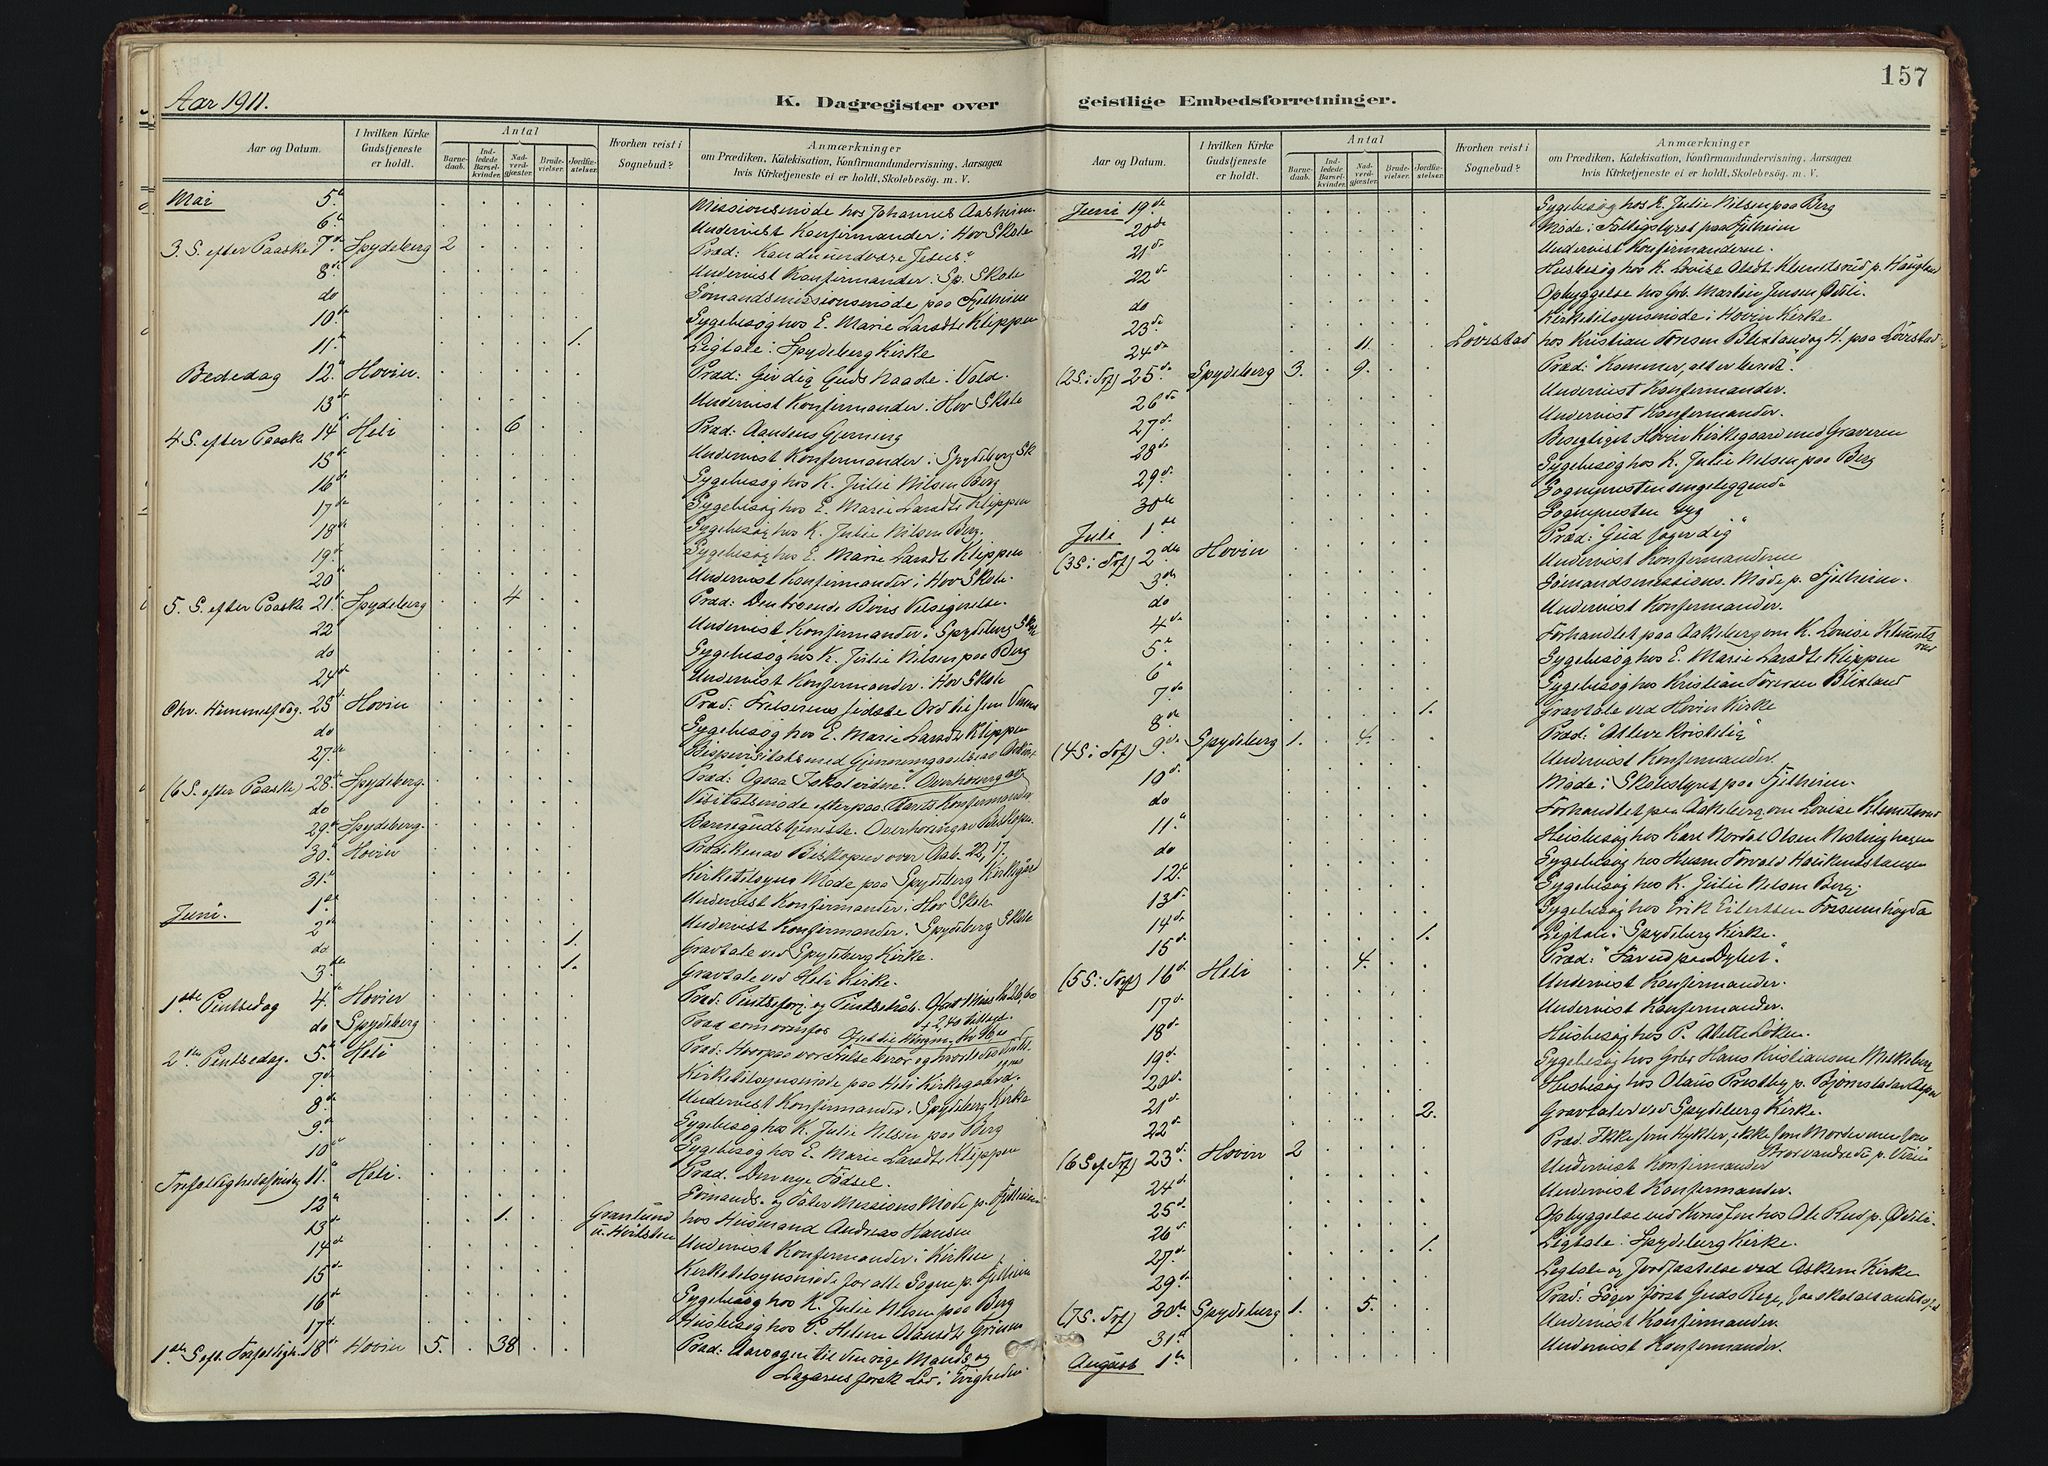 157
Aar 1911.
K. Dagregister over geistlige Embedsforretninger.
Aar og Datum. I hvilken Kirke Gudstjeneste er holdt. Antal Barnedaab. Indledede Barselkvinder. Nadverdgjæster. Brudevielser. Jordfæstelser. Hvorhen reist i Sognebud? Anmærkninger om Prædiken, Katekisation, Konfirmandundervisning, Aarsagen hvis Kirketjeneste ei er holdt, Skolebesög m. V.
Mai 5. Missionsmøde hos Johannes Aasheim
6. Undervist Konfirmander i Hov Skole
3. S. efter Paaske 7de Spydeberg 2 Præd: Kan du undvære Jesus"
8. Undervist Konfirmander i Sp. Skole
do Sømandsmissionsmøde paa Fjelheim
10. Sygebesøg hos E. Marie Larsdtr Klippen
11. 1. Ligtale i Spydeberg Kirke
Bededag 12. Hovin. Præd: Giv dig Guds Naade i Vold.
13 Undervist Konfirmander i Hov Skole
4 S. efter Paaske 14 Heli 6 Præd: Aandens Gjerning
15 Undervist Konfirmander i Spydeberg Sk
16 Sygebesøg hos K. Julie Nilsen Berg
17 Sygebesøg hos E. Marie Larsdtr Klippen
18 Sygebesøg hos K. Julie Nilsen Berg.
19 Sygebesøg hos E. Marie Larsdtr Klippen
20 Undervist Konfirmander i Hov Skole.
5. S. efter Paaske 21. Spydeberg 4 Præd: Den troende Bøns Velsignelse.
22 Undervist Konfirmander i Spydeberg Skole
do Sygebesøg hos K. Julie Nilsen paa Berg
24 Undervist Konfirmander i Hov Skole
Chr. Himmelfdag. 25 Hovin Præd: Frelserens sidste Ord til sine Venner
do Sygebesøg hos E. Marie Larsdtr Klippen
27. Bispevisitats med Gjennemgaaelse av
(6 S. efter Paaske) 28. Spydeberg. Præd: Ogsaa I skal vidne. Overhøring av
do Visitatsmøde efterpaa. Konfirmander
29. Spydeberg. Barnegudstjeneste. Overhøring av Biskopen.
30. Hovin Prædiken av Biskopen over Aab. 22, 17
31. Kirketilsyns Møde paa Spydeberg Kirkegård
Juni. 1. Undervist Konfirmander i Hov Skole.
2 Undervist Konfirmander i Spydeberg Skole
do 1. Gravtale ved Spydeberg Kirke.
3. 1. Gravtale ved Heli Kirke.
1ste Pintsedag 4. Hovin Præd: Pintseforj. og Pintse
do Spydeberg Præd som ovenfor
2den Pintsedag. 5. Heli Præd: Hvorpaa
7 Kirketilsynsmøde paa Heli Kirkegaard.
8. Undervist Konfirmander i Spydeberg Kirke
9. Sygebesøg hos K. Julie Nilsen paa Berg
10 Sygebesøg hos E. Marie Larsdtr Klippen
Trefoldighedssøndag 11. Heli. Præd. Den nye Fødsel.
12 Sømands- og Missions Møde p. Fjelheim
13 1. Granlund hos Husmand Andreas Hansen
14 Undervist Konfirmander i Kirken
15 Kirketilsynsmøde for alle Sogne p. Fjelheim
16 Sygebesøg hos K. Julie Nilsen paa Berg
17 Husbesøg hos P. Helene Olausdtr
1ste S eft. Trefoldigh. 18 Hovin 5. 38 Præd: Aarsagen til den rige Mands og
Lazarus forsk Lod i Evigheden
Aar og Datum. I hvilken Kirke Gudstjeneste er holdt. Antal Barnedaab. Indledede Barselkvinder. Nadverdgjæster. Brudevielser. Jordfæstelser. Hvorhen reist i Sognebud? Anmærkninger om Prædiken, Katekisation, Konfirmandundervisning, Aarsagen hvis Kirketjeneste ei er holdt, Skolebesög m. V.
Juni 19de Sygebesøg hos K. Julie Nilsen paa Berg
20de Møde i Fattigstyret paa Fjelheim
21 Undervist Konfirmanderne.
22 Husbesøg hos K. Lovise
do Opbyggelse hos Grb. Martin Jensen
23 Kirketilsynsmøde i Hovin Kirke
24 11. Løvestad hos Kristian Toresen Blixland og H. paa Løvestad
(2 S. i Trf) 25 Spydeberg 3. 9. Præd: "Kommer, alt er beredt"
26 Undervist Konfirmander.
27 Undervist Konfirmander.
28 Besigtiget Hovin Kirkegaard med Graveren
29. Sygebesøg hos K. Julie Nilsen paa Berg
30te Sognepresten sengeliggende
Juli 1. Sognepresten syg
(3 S. i Trf) 2den Hovin Præd: "Gud søger dig"
3 Undervist Konfirmanderne
do Sømandsmissions. Møde p. Fjelheim.
4 Undervist Konfirmander.
5. Forhandlet paa Aakeberg om K. Lovise
6 Sygebesøg hos E. Marie Larsdtr Klippen
7 Sygebesøg hos Kristian Toresen Blixland
8. 1. Gravtale ved Hovin Kirke
(4 S. i Trf) 9. Spydeberg 1. 4. Præd: "At leve kristelig"
10 Undervist Konfirmander.
do Møde i Skolestyret paa Fjelheim.
11. Forhandlet paa Aakeberg om Lovise
do Husbesøg hos Karl Nordal Olsen
12. Sygebesøg hos Husm Torvald
13 Sygebesøg hos K. Julie Nilsen Berg.
14 Sygebesøg hos Erik Eilertsen Fossumhøgda
15 1. Ligtale i Spydeberg Kirke.
(5 S. i Tref) 16 Heli 4. Præd: "Far ud paa Dybet".
17 Undervist Konfirmander.
18 Undervist Konfirmander.
19 Husbesøg hos P. Alette Løken.
20 Sygebesøg hos Grbr Hans Kristiansen
21 Husbesøg hos Olaus Prestby p.
22 2. Gravtaler ved Spydeberg Kirke.
(6 S ef Trf) 23 Hovin 2 Præd. Ikke som Hykler, ikke som Morder men som
24 Undervist Konfirmander
25 Undervist Konfirmander.
26 Opbyggelse ved hos Ole Rud p.
27. 1. Ligtale i Spydeberg Kirke.
29. Ligtale og Jordfæstelse ved Askim Kirke
(7 S. Trf) 30te Spydeberg 1. 5. Præd: Søger først Guds Rige,
31 Undervist Konfirmander.
August 1 Undervist Konfirmander.